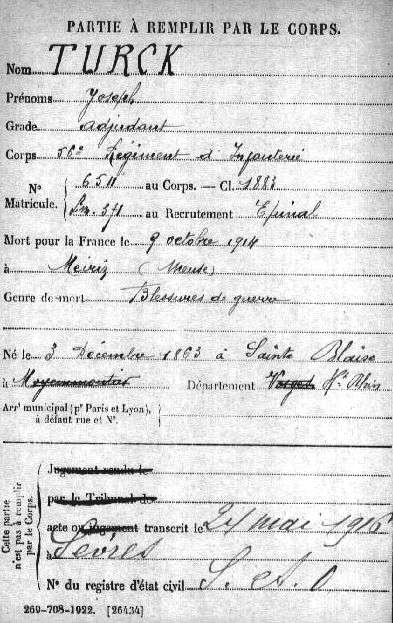 PARTIE À REMPLIR PAR LE CORPS.
Nom TURCK
Prénoms Joseph
Grade adjudant
Corps 56e Régiment d'Infanterie
N° Matricule. 6511 au Corps. — Cl. 1883
Lm. 371 au Recrutement Epinal
Mort pour la France le 9 octobre 1914
à (Meuse)
Genre de mort Blessures de guerre
Né le 3 Décembre 1863 à Sainte Blaise
à Moyenmoutier Département Vosges Ht Rhin
Arrt municipal (pr Paris et Lyon),
à défaut rue et N°.
Cette partie n'est pas à remplir par le Corps.
Jugement rendu le
par le Tribunal de
acte ou jugement transcrit le 21 mai 1916
à Sèvres
N° du registre d'état civil S. et O
269-708-1922. [26434]